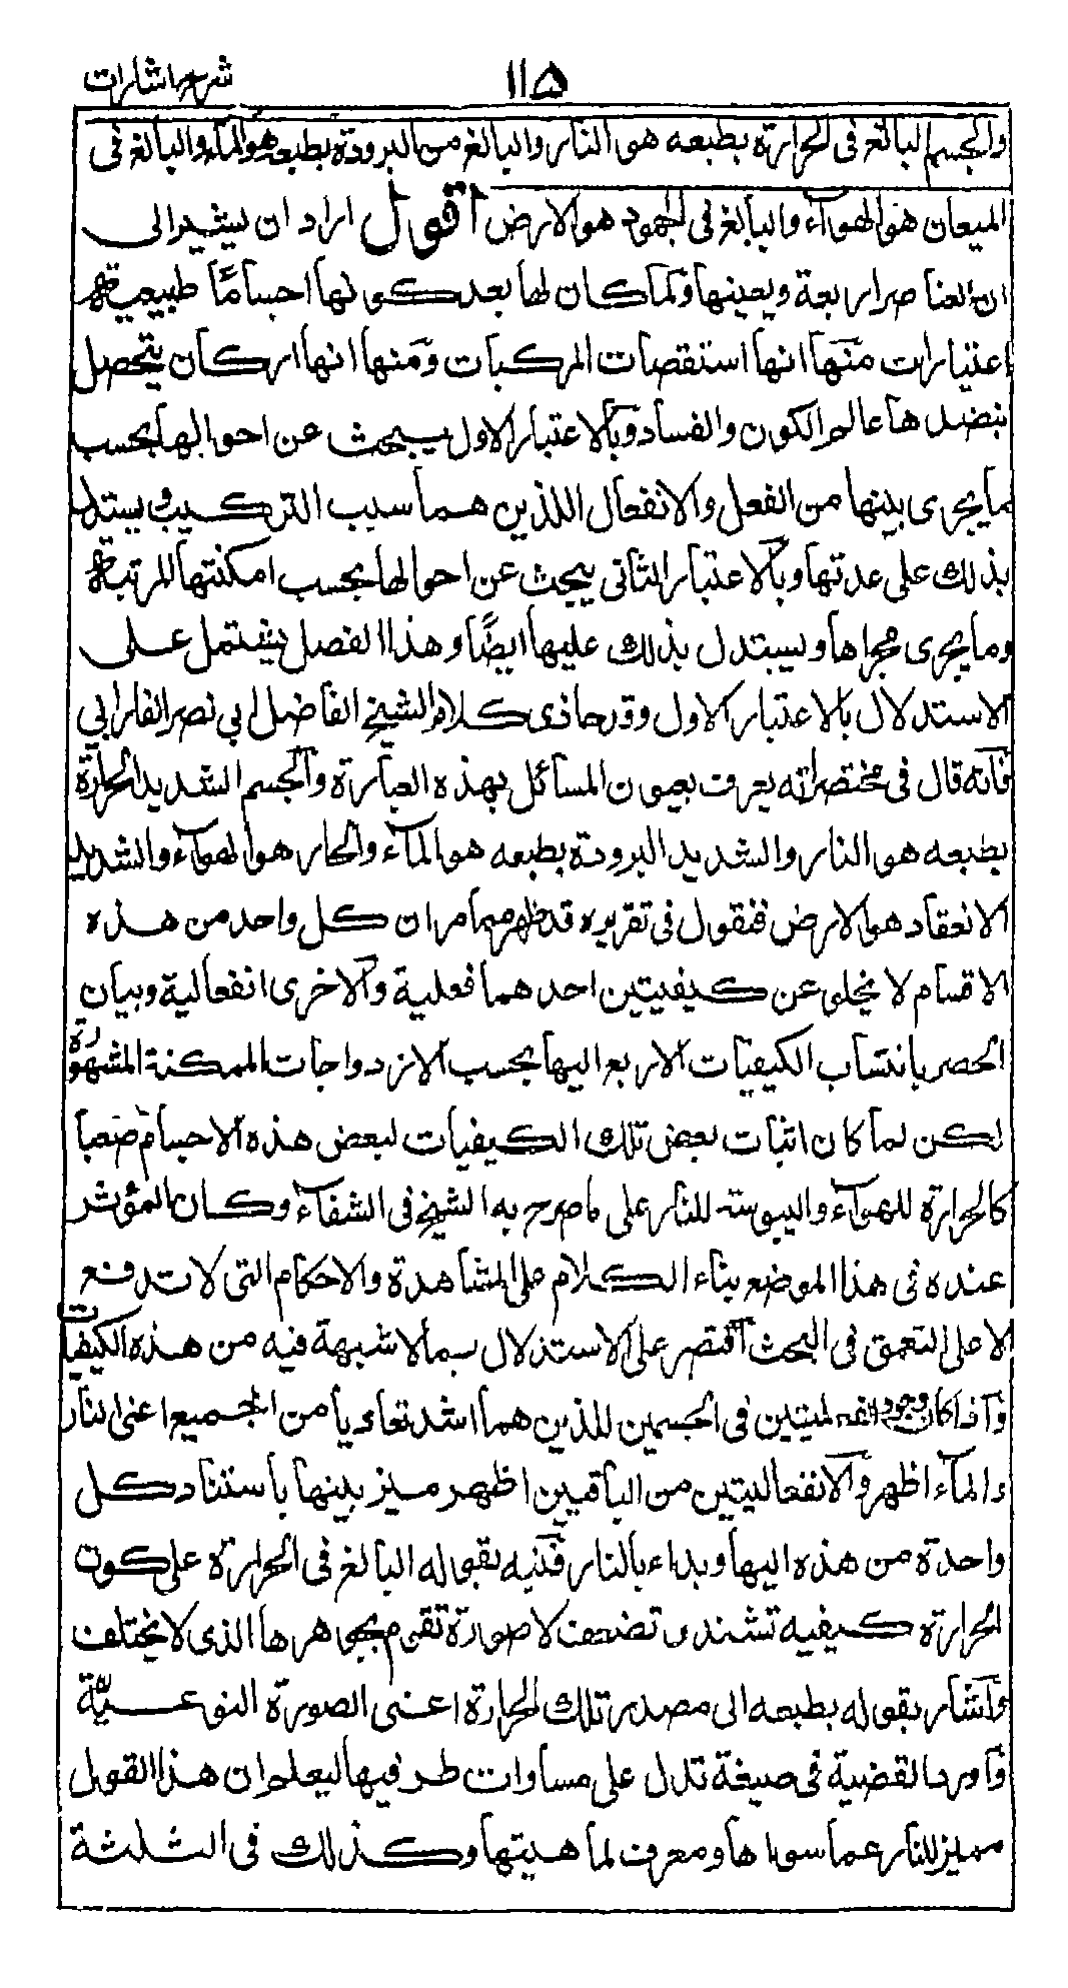 ۱۱۵ شرح اشارات
والجسم البالغ فى الحرارة بطبعه هو النار والبالغ من البرودة بطبعه هو الماء والبالغ فى
الميعان هو الهواء والبالغ فى الجمود هو الارض اقول اراد ان يشير الى
ان العناصر اربعة ويعينها ولما كان لها بعد كونها اجسامًا طبيعية
اعتبارات منها انها استقصات المركبات ومنها انها اركان يتحصل
بنضدها عالم الكون والفساد وبالاعتبار الاول يبحث عن احوالها بحسب
ما يجرى بينها من الفعل والانفعال اللذين هما سبب التركيب ويستدل
بذلك على عدتها وبالاعتبار الثانى يبحث عن احوالها بحسب امكنتها المرتبة
وما يجرى مجراها ويستدل بذلك عليها ايضًا وهذا الفصل يشتمل على
الاستدلال بالاعتبار الاول وقد حاذى كلام الشيخ الفاضل ابي نصر الفارابي
فانه قال فى مختصر له يعرف بعيون المسائل بهذه العبارة والجسم الشديد الحرارة
بطبعه هو النار والشديد البرودة بطبعه هو الماء والحار هو الهواء والشديد
الانعقاد هو الارض فنقول فى تقريره قد ظهر مما مر ان كل واحد من هذه
الاقسام لا يخلو عن كيفيتين احدهما فعلية والاخرى انفعالية وبيان
الحصر بانتساب الكيفيات الاربع اليها بحسب الازدواجات الممكنة المشهورة
لكن لما كان اثبات بعض تلك الكيفيات لبعض هذه الاجسام صعبا
كالحرارة للهواء واليبوسة للنار على ما صرح به الشيخ فى الشفاء وكان المؤثر
عنده فى هذا الموضع بناء الكلام على المشاهدة والاحكام التى لا تدفع
لا على التعمق فى البحث اقتصر على الاستدلال بما لا شبهة فيه من هذه الكيفيات
ولما كان وجود الفعليتين فى الجسمين اللذين هما اشد تعاديا من الجميع اعنى النار
والماء اظهر والانفعاليتين من الباقيين اظهر ميز بينها باستناد كل
واحدة من هذه اليها وبداء بالنار فنبه بقوله البالغ فى الحرارة على كون
الحرارة كيفيه تشتد و تضعف لا صورة تقوم بجوهرها الذى لا يختلف
واشار بقوله بطبعه الى مصدر تلك الحرارة اعنى الصورة النوعية
واورد القضية فى صيغة تدل على مساوات طرفيها ليعلم ان هذا القول
مميز للنار عما سواها ومعرف لماهيتها وكذلك فى الثلثة